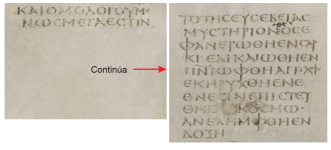 ΚΑΙΟΜΟΛΟΓΟΥΜΕ
ΝΩϹΜΕΓΑΕϹΤΙΝ
Continúa
ΤΟΤΗϹΕΥϹΕΒΕΙΑϹ
ΜΥϹΤΗΡΙΟΝΟϹΕ
ΦΑΝΕΡΩΘΗΕΝϹΑΡ
ΚΙΕΔΙΚΑΙΩΘΗΕΝ
ΠΝΙΩΦΘΗΑΓΓΕΛΟΙϹ
ΕΚΗΡΥΧΘΗΕΝΕ
ΘΝΕϹΙΝΕΠΙϹΤΕΥ
ΘΗΕΝΚΟϹΜΩ
ΑΝΕΛΗΜΦΘΗΕΝ
ΔΟΞΗ